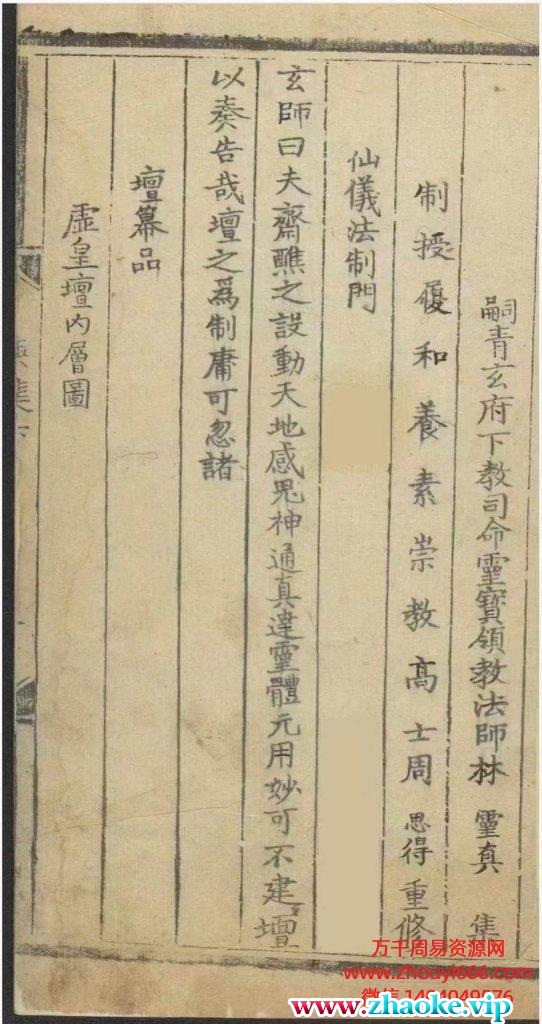 嗣青玄府下教司命靈寶領教法師林靈真集
制授履和養素崇教高士周思得重修
仙儀法制門
玄師曰夫齋醮之設動天地感鬼神通真達靈體元用妙可不建壇
以奏告哉壇之爲制庸可忽諸
壇幕品
虛皇壇内層圖
方千周易资源网
www.zhouyi666.com
www.zhaoke.vip